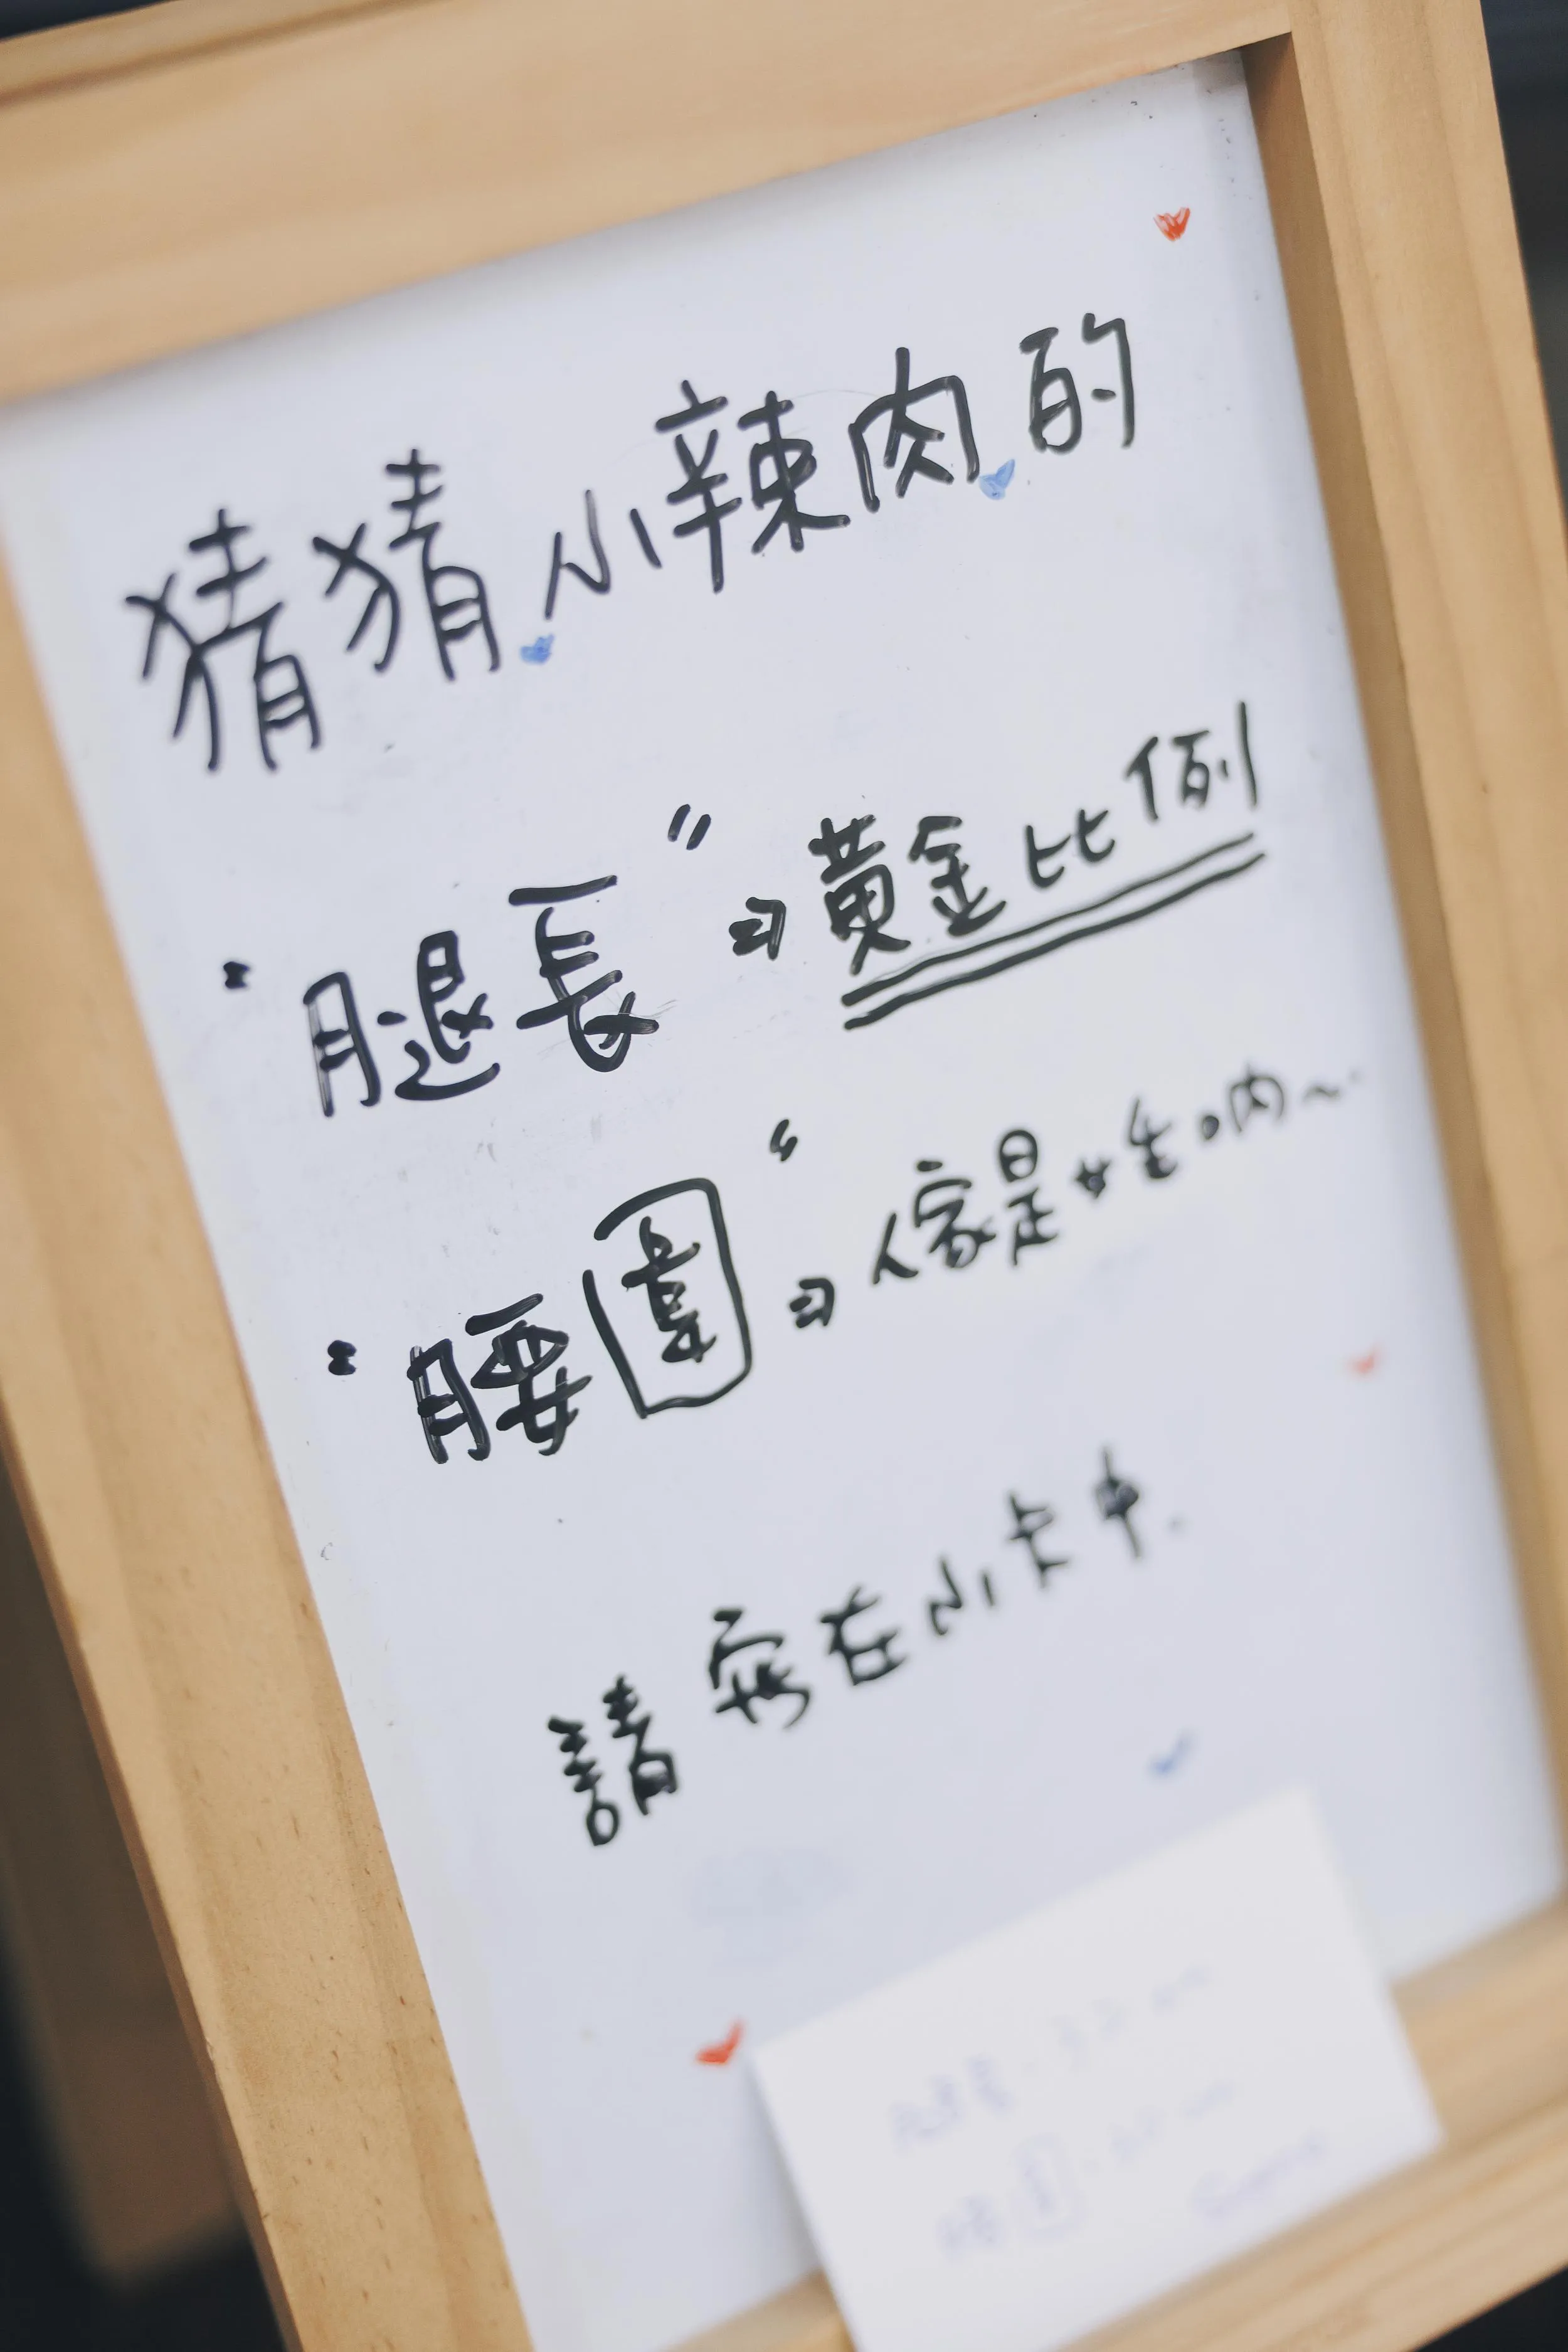 猜猜小辣肉的
"腿長" → 黃金比例
"腰圍" → 人家是女生吶~
請寫在小卡中.